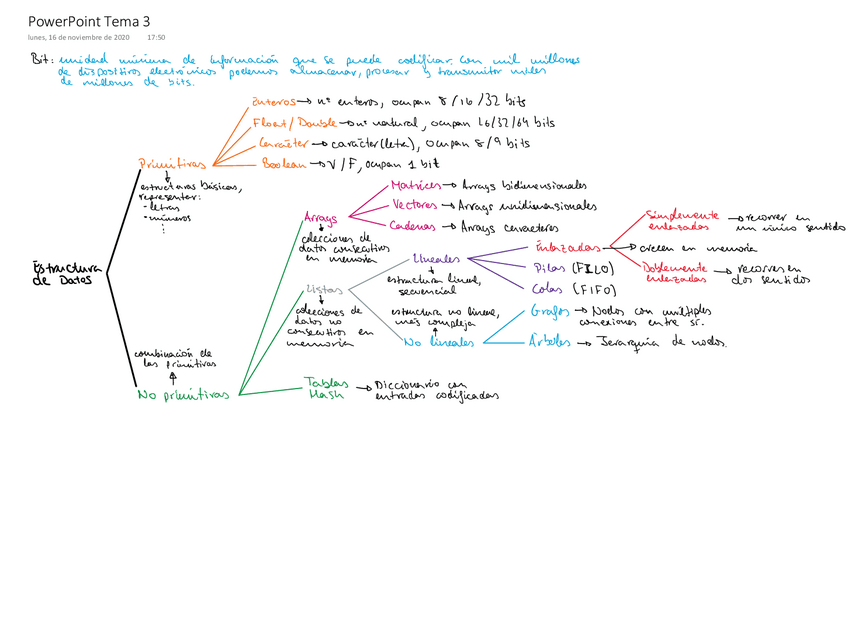 PowerPoint Tema 3
lunes, 16 de noviembre de 2020 17:50
Bit: unidad mínima de información que se puede codificar. Con mil millones
de dispositivos electrónicos podemos almacenar, procesar y transmitir miles
de millones de bits.
Enteros → nº enteros, ocupan 8/16/32 bits
Float/Double → nº natural, ocupan 16/32/64 bits
Carácter → carácter (letra), ocupan 8/9 bits
Boolean → V/F, ocupan 1 bit
Primitivas
estructuras básicas,
representar:
- letras
- números
⋮
Matrices → Arrays bidimensionales
Vectores → Arrays unidimensionales
Cadenas → Arrays caracteres
Arrays
colecciones de
datos consecutivos
en memoria
Simplemente
enlazadas → recorrer en
un único sentido
Enlazadas → crecen en memoria
Doblemente
enlazadas → recorres en
dos sentidos
Lineales
estructura lineal,
secuencial
Pilas (FILO)
Colas (FIFO)
Estructura
de Datos
Listas
colecciones de
datos no
consecutivos en
memoria
estructura no lineal,
más compleja
No lineales
Grafos → Nodos con múltiples
conexiones entre sí.
Árboles → Jerarquía de nodos.
combinación de
las primitivas
No primitivas
Tablas
Hash → Diccionario con
entradas codificadas